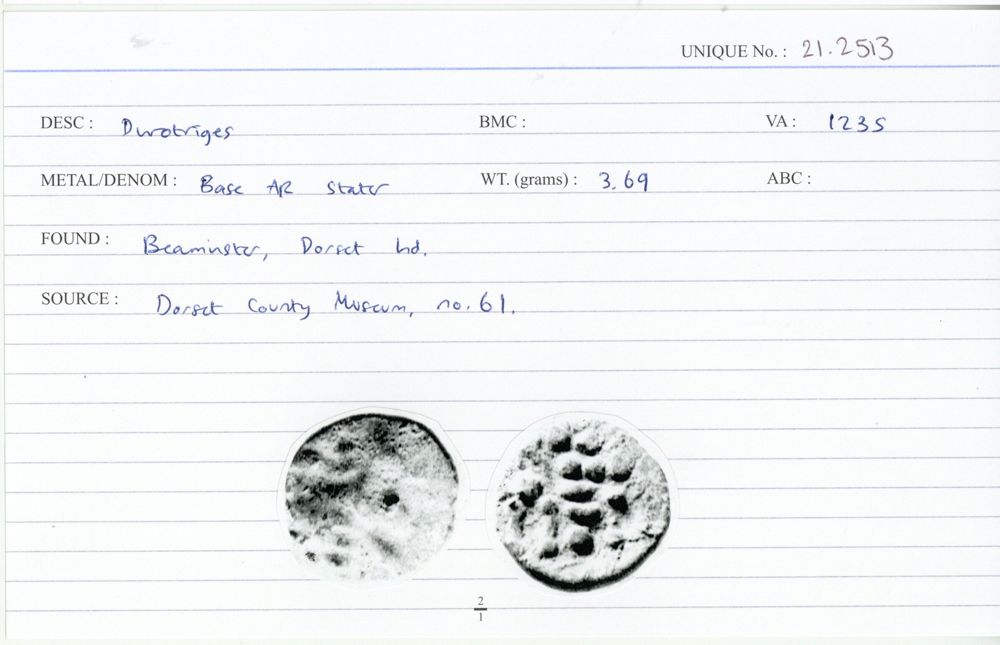 UNIQUE No. : 21.2513
DESC : Durotriges BMC : VA : 1235
METAL/DENOM : Base AR Stater WT. (grams) : 3.69 ABC :
FOUND : Beaminster, Dorset hd.
SOURCE : Dorset County Museum, no. 61.
2
1